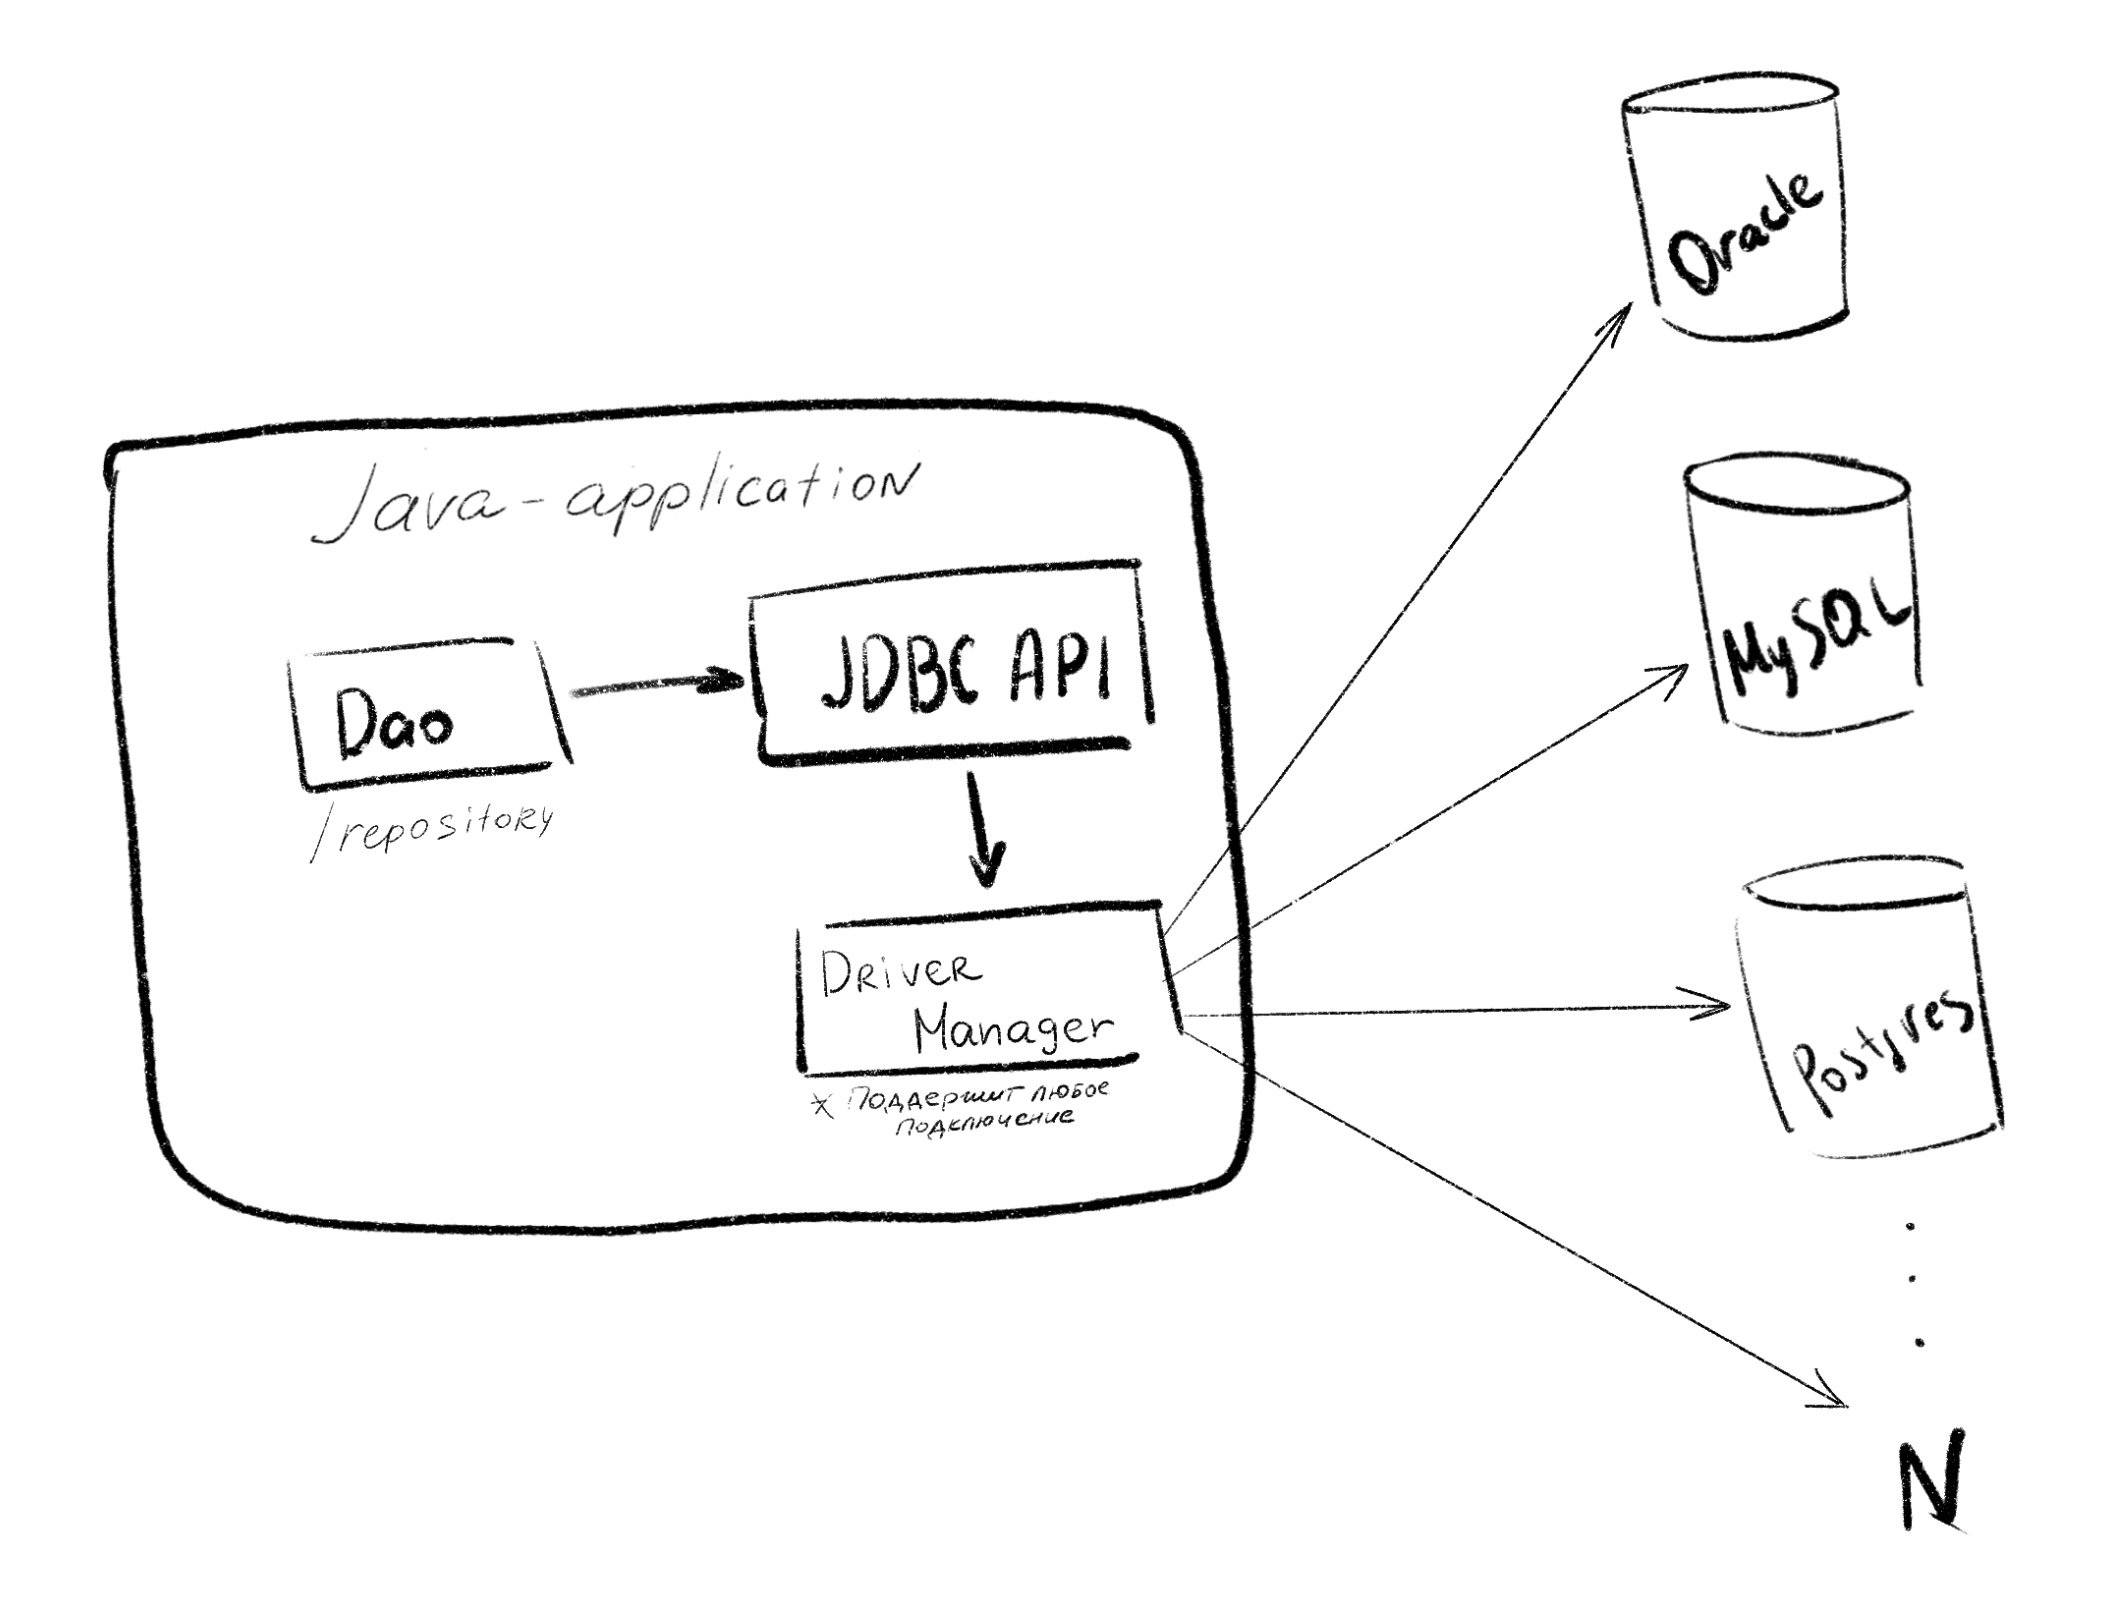 Java-application
Dao
/repository
JDBC API
Driver
Manager
* Поддержит любое
подключение
Oracle
MySQL
Postgres
N